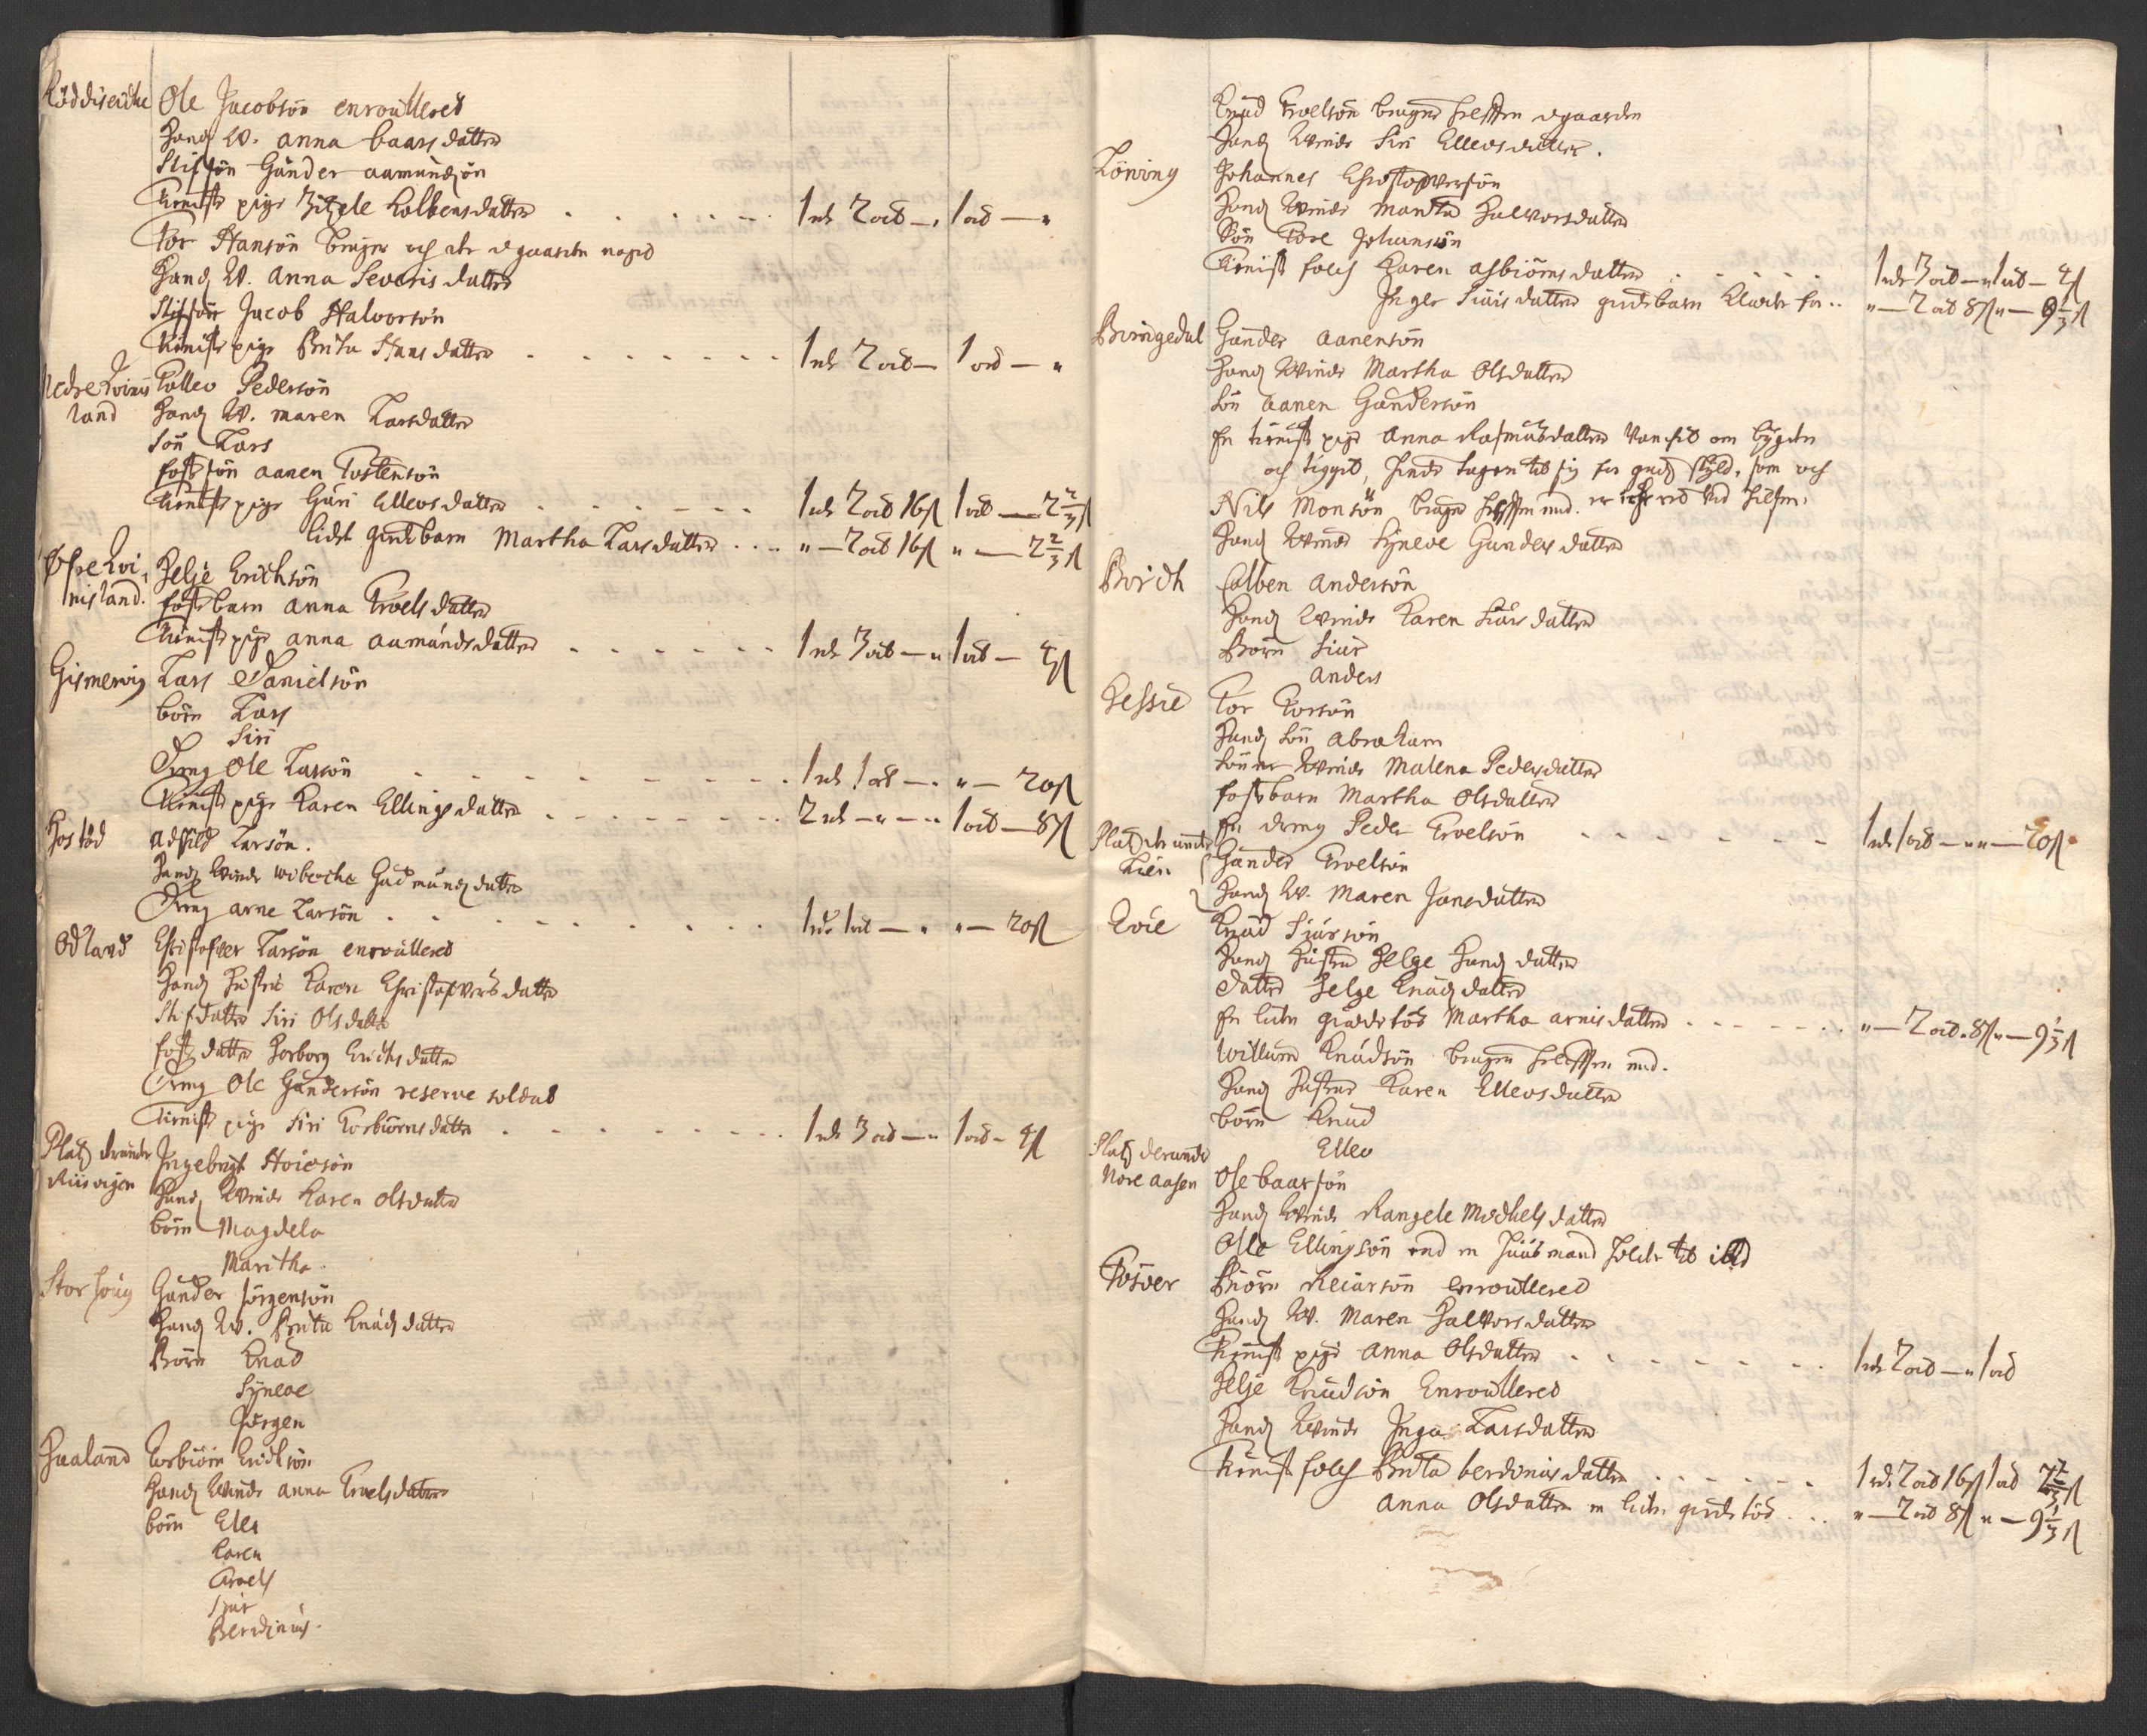 Ole Jacobsön enroulleret
Hans W. anna baars datter
Stifsön Gunder aamundsön
Tienist pige Zitzele Kolbensdatter 1 rdr 2 ort — 1 ort —
Tor Hansön bruger och gaarden
Hans W. Anna Severis datter
Stifsön Jacob Halvorsön
Tienist pige Brita Hans datter 1 rdr 2 ort — 1 ort —
Nedre Qvinis Tollev Pedersön
land Hans W. maren Larsdatter
Sön Lars
fostersön aanen Tostensön
Tienist pige Guri Ellevs datter 1 rdr 2 ort 16 s 1 ort — 2 2/3 s
lidet gudebarn Martha Larsdatter — 2 ort 16 s — 2 2/3 s
Öfre Qvi- Helje Erichsön
nisland. fosterbarn anna Troels datter
Tienist pige anna aamunds datter 1 rdr 3 ort — 1 ort — 4 s
Gismervig Lars Danielsön
börn Lars
Siri
Dreng Ole Larsön 1 rdr 1 ort — 20 s
Tienist pige Karen Ellings datter 2 rdr — 1 ort — 8 s
Adsild Larsön.
Hans Qvinde wibeche Gudmunds datter
Dreng arne Larsön 1 rdr 1 ort — 20 s
Odland Christopher Larsön enroulleret
Hans Hustru Karen Christophers datter
Stifdatter Siri Olsdatter
foster datter Horborg Erichs datter
Dreng Ole Gundersön reserve soldat
Tienist pige Siri Torbiörns datter 1 rdr 3 ort — 1 ort — 4 s
Plads derunder Ingebrigt
Riisvigen Hans Qvinde Karen Olsdatter
börn Magdela
Maritha.
Storhoug Gunder Jörgensön
Hans W. Brita Knuds datter
Börn Knud
Syneve
Jörgen
Hualand Torbiörn Erichsön
Hans Qvinde anna Troelsdatter
börn Elli
Karen
Troels
Siur
Berdinus.
Knud Troelsön bruger helften gaarden
Hans Qvinde Siri Ellevs datter.
Löning Johannes Christophersön
Hans Qvinde Marita Halvorsdatter
Sön Tore Johansön
Tienist folch Karen asbiörns datter 1 rdr 3 ort — 1 ort — 4 s
Inger Siurs datter gudebarn — 2 ort 8 s — 9 1/3 s
Bringedal Gunder aanensön
Hans Qvinde Martha Olsdatter
Sön aanen Gundersön
En tienist pige Anna Rasmusdatter om bygden
och tigget, hende tagen til sig for guds skyld, som och
Nils Monsön bruger helften med.
Hans Qvinde Syneve Gunders datter
Colben andersön
Hans Qvinde Karen Siurs datter
Börn Siur
anders
Tor Torsön
Hans Sön Abraham
Sönnens Qvinde Malena Pedersdatter
fosterbarn Martha Olsdatter
En dreng Peder Troelsön 1 rdr 1 ort — 20 s
Plads derunder Gunder Troelsön
Hans W. Maren Jansdatter
Knud Siursön
Hans Hustru Helge Hans datter
datter Helge Knuds datter
En liden Martha arnis datter — 2 ort. 8 s — 9 1/3 s
Willum Knudsön bruger helften med.
Hans Hustru Karen Ellevsdatter
börn Knud
Ellev
Plads derunder
Nore aasen Ole baarsön
Hans Qvinde Rangele Mechels datter
Olle Ellingsön
Tosver Biörn Reiarsön enroulleret
Hans W. Maren Halvors datter
Tienist pige Anna Olsdatter 1 rdr 2 ort — 1 ort
Helje Knudsön Enroulleret
Hans Qvinde Inga Larsdatter
Tienist folch Brita berdinus datter 1 rdr 2 ort 16 s 1 ort 2 2/3 s
Anna Olsdatter en liden — 2 ort 8 s — 9 1/3 s